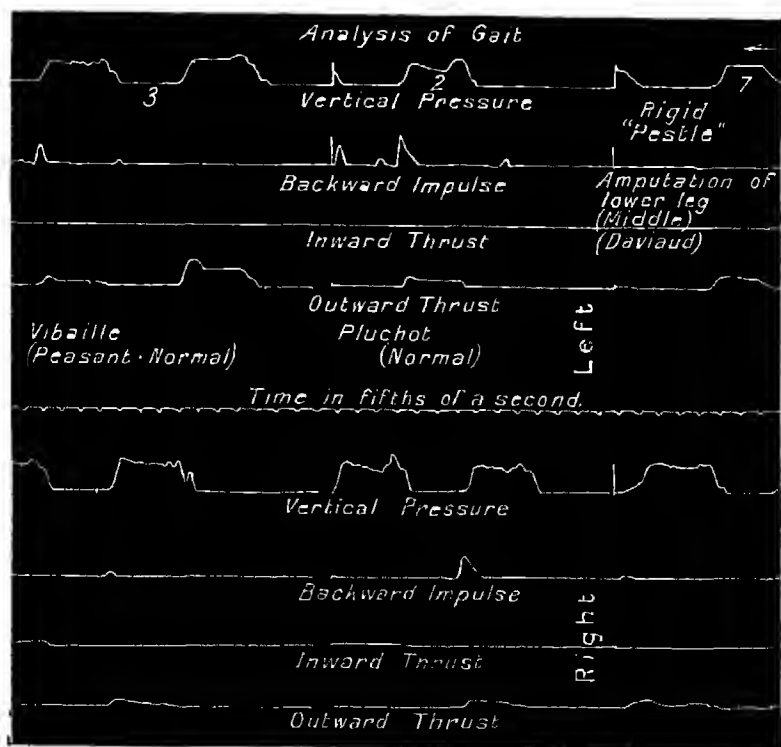 Analysis of Gait
3
2
7
Vertical Pressure
Rigid
"Pestle"
Backward Impulse
Amputation of
lower leg
(Middle)
(Daviaud)
Inward Thrust
Outward Thrust
Left
Vibaille
(Peasant·Normal)
Pluchot
(Normal)
Time in fifths of a second.
Vertical Pressure
Backward Impulse
Right
Inward Thrust
Outward Thrust